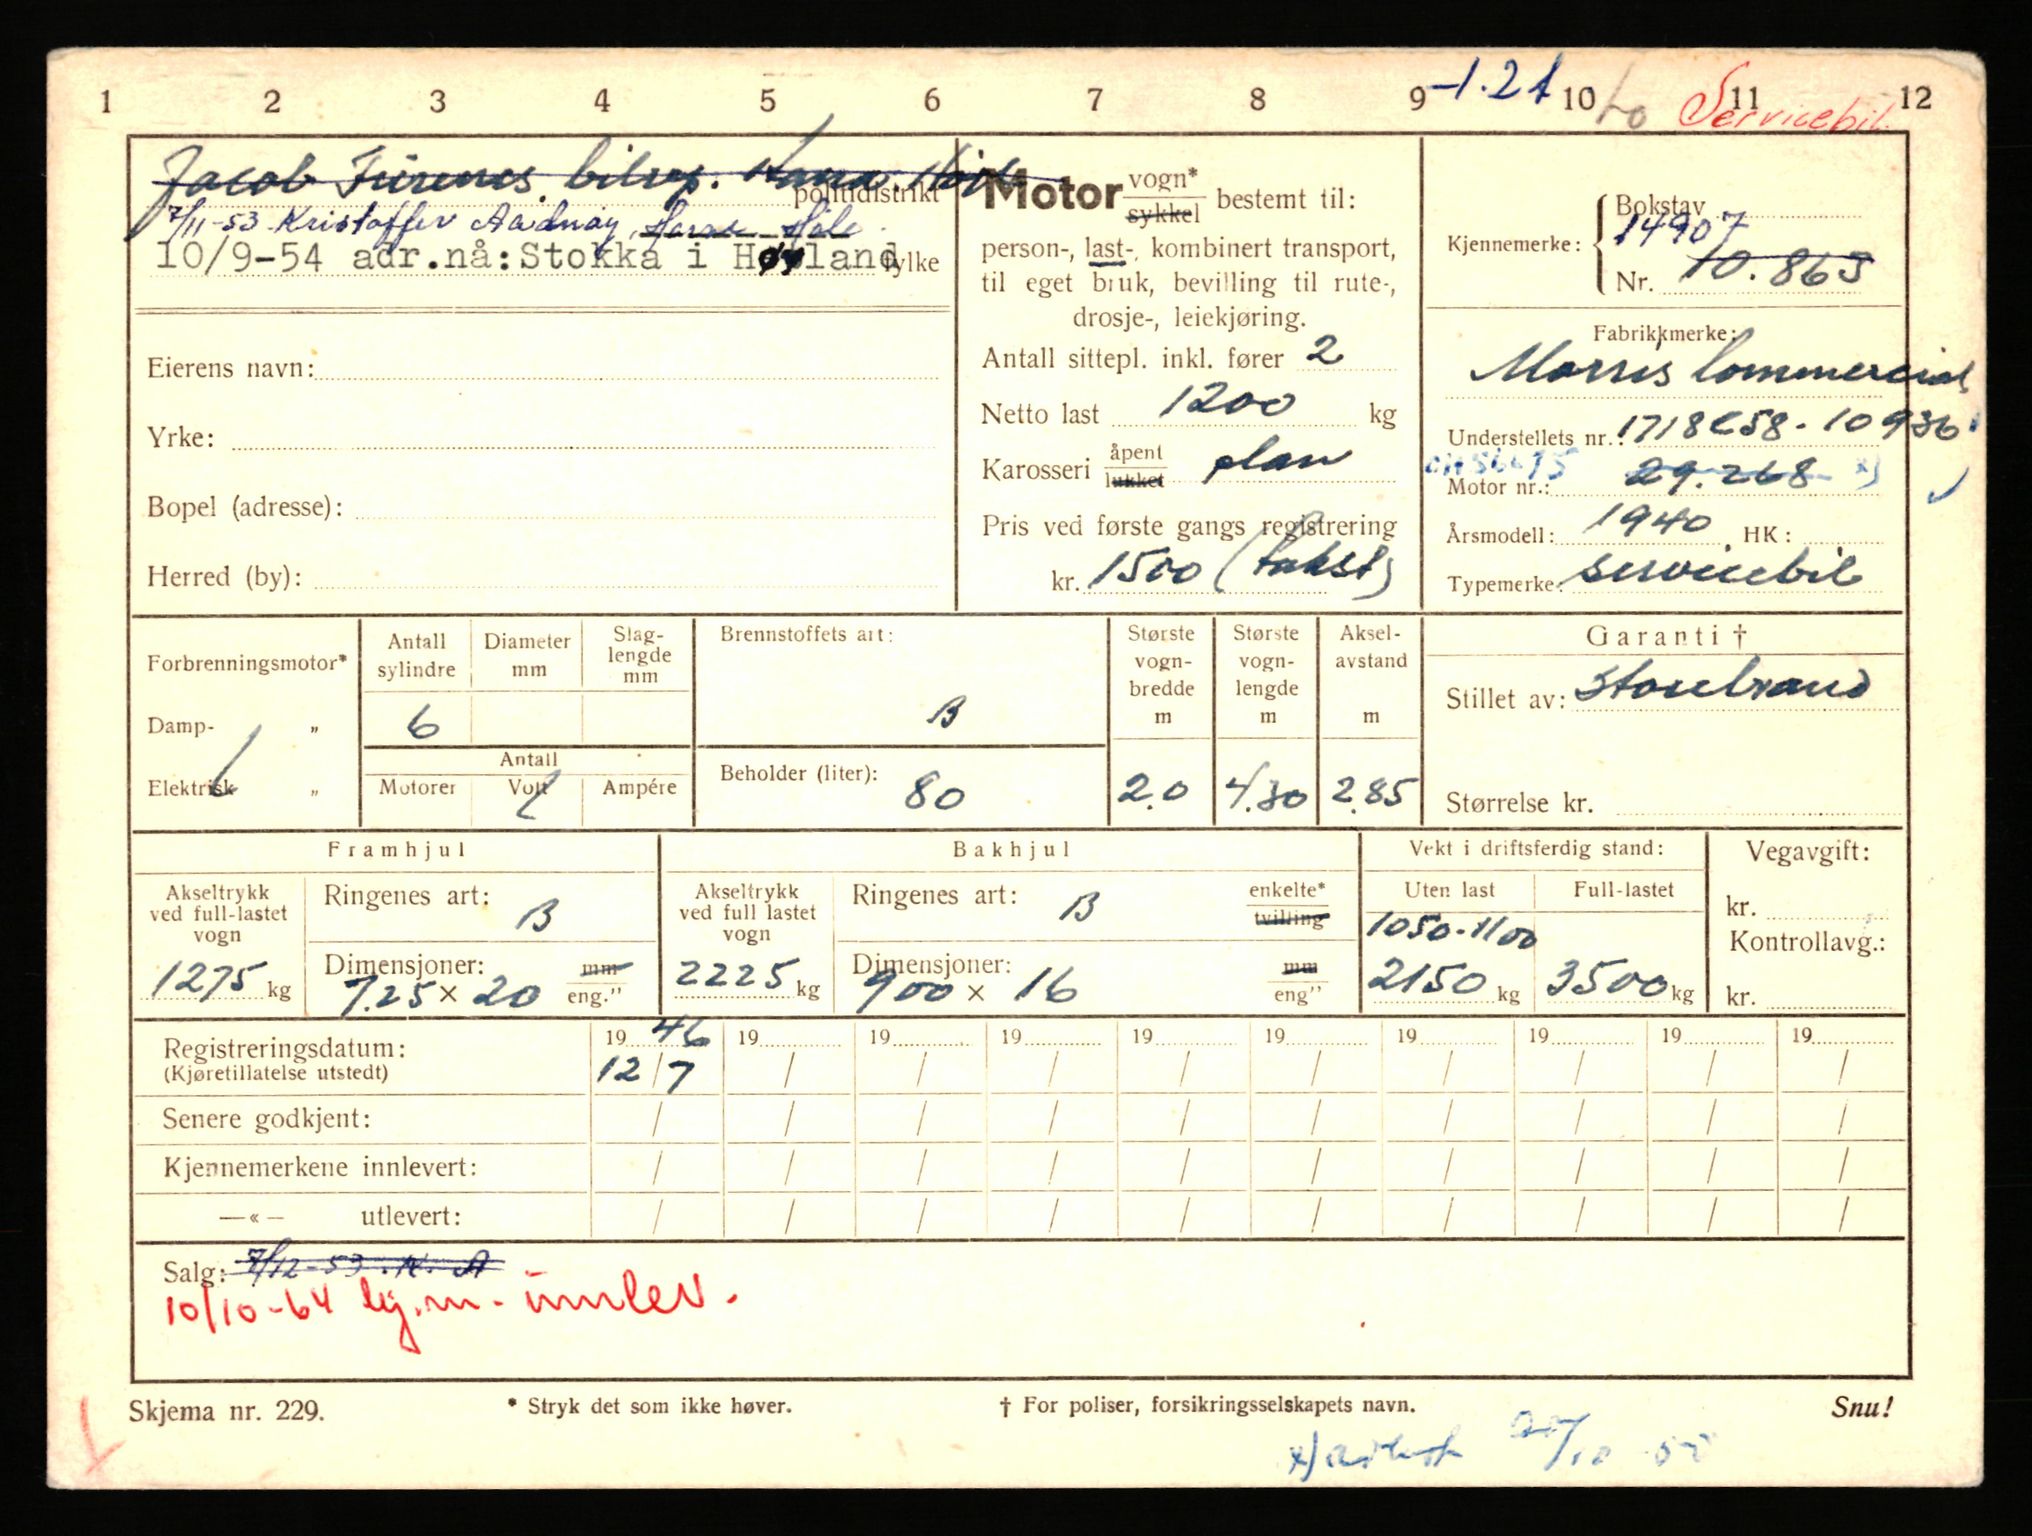 1 2 3 4 5 6 7 8 9 -1.21 10 11 12
Lo Servicebil.
Jacob Fürenes bilrep. Hana. Høle
politidistrikt
7/11-53 Kristoffer Aadnøy, Hana Høle
10/9-54 adr.nå: Stokka i Høyland fylke
Eierens navn:
Yrke:
Bopel (adresse):
Herred (by):
Motor vogn* sykkel bestemt til:
person-, last-, kombinert transport,
til eget bruk, bevilling til rute-,
drosje-, leiekjøring.
Antall sittepl. inkl. fører 2
Netto last 1200 kg
Karosseri åpent lukket plan
Pris ved første gangs registrering
kr. 1500 (takst)
Kjennemerke: Bokstav
14907
Nr. 10.865
Fabrikkmerke:
Morris Commercial
Understellets nr.: 1718C58-10936
Motor nr.: 29.268 x)
Årsmodell: 1940 HK:
Typemerke: servicebil
Forbrenningsmotor*
Damp- „
Elektrisk „
Antall sylindre
Diameter mm
Slaglengde mm
6
Antall
Motorer Volt Ampére
Brennstoffets art:
B
Beholder (liter): 80
Største vogn-bredde m
2.0
Største vogn-lengde m
4.30
Aksel-avstand m
2.85
Garanti †
Stillet av: Storebrand
Størrelse kr.
Framhjul
Akseltrykk ved full-lastet vogn
1275 kg
Ringenes art: B
Dimensjoner: mm
7.25 × 20 eng."
Bakhjul
Akseltrykk ved full lastet vogn
2225 kg
Ringenes art: B enkelte* tvilling
Dimensjoner: mm
900 × 16 eng"
Vekt i driftsferdig stand:
Uten last Full-lastet
1050-1100
2150 kg 3500 kg
Vegavgift:
kr.
Kontrollavg.:
kr.
Registreringsdatum: 19 46 19 19 19 19 19 19 19 19 19
(Kjøretillatelse utstedt) 12/7 / / / / / / / / /
Senere godkjent: / / / / / / / / / /
Kjennemerkene innlevert: / / / / / / / / / /
—«— utlevert: / / / / / / / / / /
Salg: 7/12-53. K. A
10/10-64 kj.m. innlev.
Skjema nr. 229. * Stryk det som ikke høver. † For poliser, forsikringsselskapets navn. Snu!